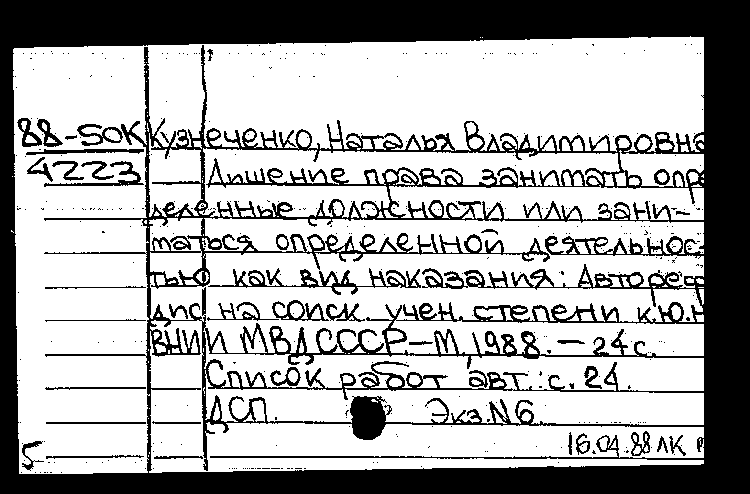 88-5ОК Кузнеченко, Наталья Владимировна
4223 Лишение права занимать опре
деленные должности или зани-
маться определенной деятельнос-
тью как вид наказания: Автореф
дис на соиск. учен. степени к.ю.н
ВНИИ МВД СССР.-М., 1988. - 24 с.
Список работ авт.: с. 24.
ДСП. Экз.N6
16.04.88 ЛК
5